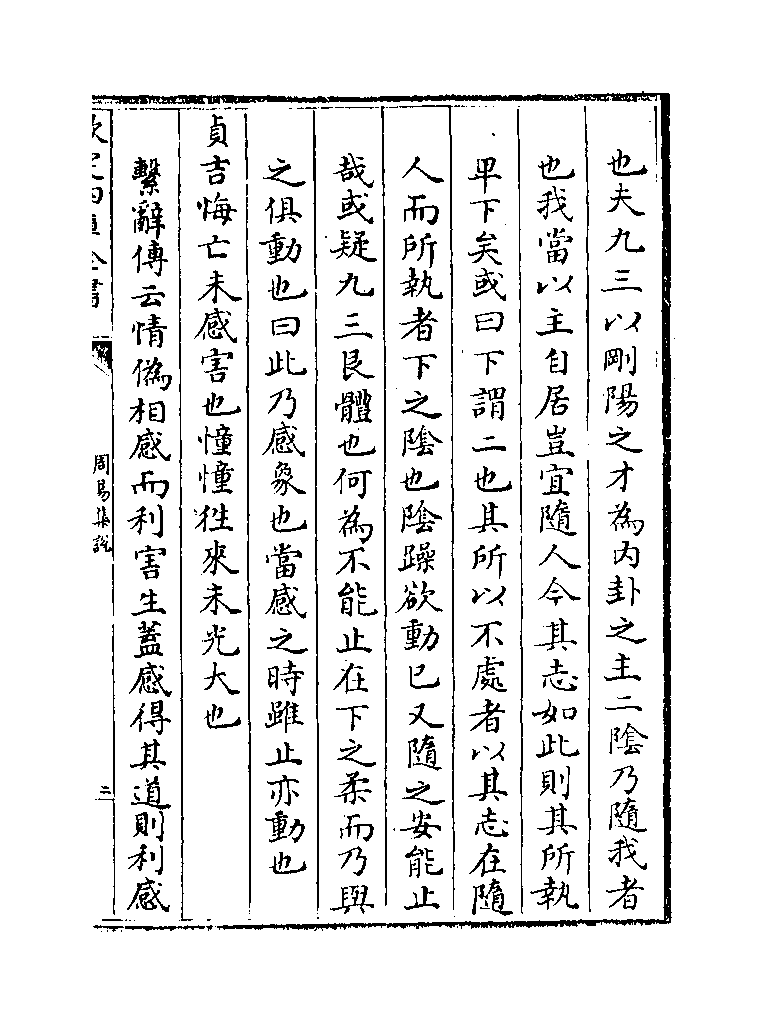 也夫九三以剛陽之才為内卦之主二陰乃隨我者
也我當以主自居豈宜隨人今其志如此則其所執
卑下矣或曰下謂二也其所以不處者以其志在隨
人而所執者下之陰也陰躁欲動已又隨之安能止
哉或疑九三艮體也何為不能止在下之柔而乃與
之俱動也曰此乃感象也當感之時雖止亦動也
貞吉悔亡未感害也憧憧徃來未光大也
繫辭傳云情僞相感而利害生蓋感得其道則利感
欽定四庫全書
周易集說
二